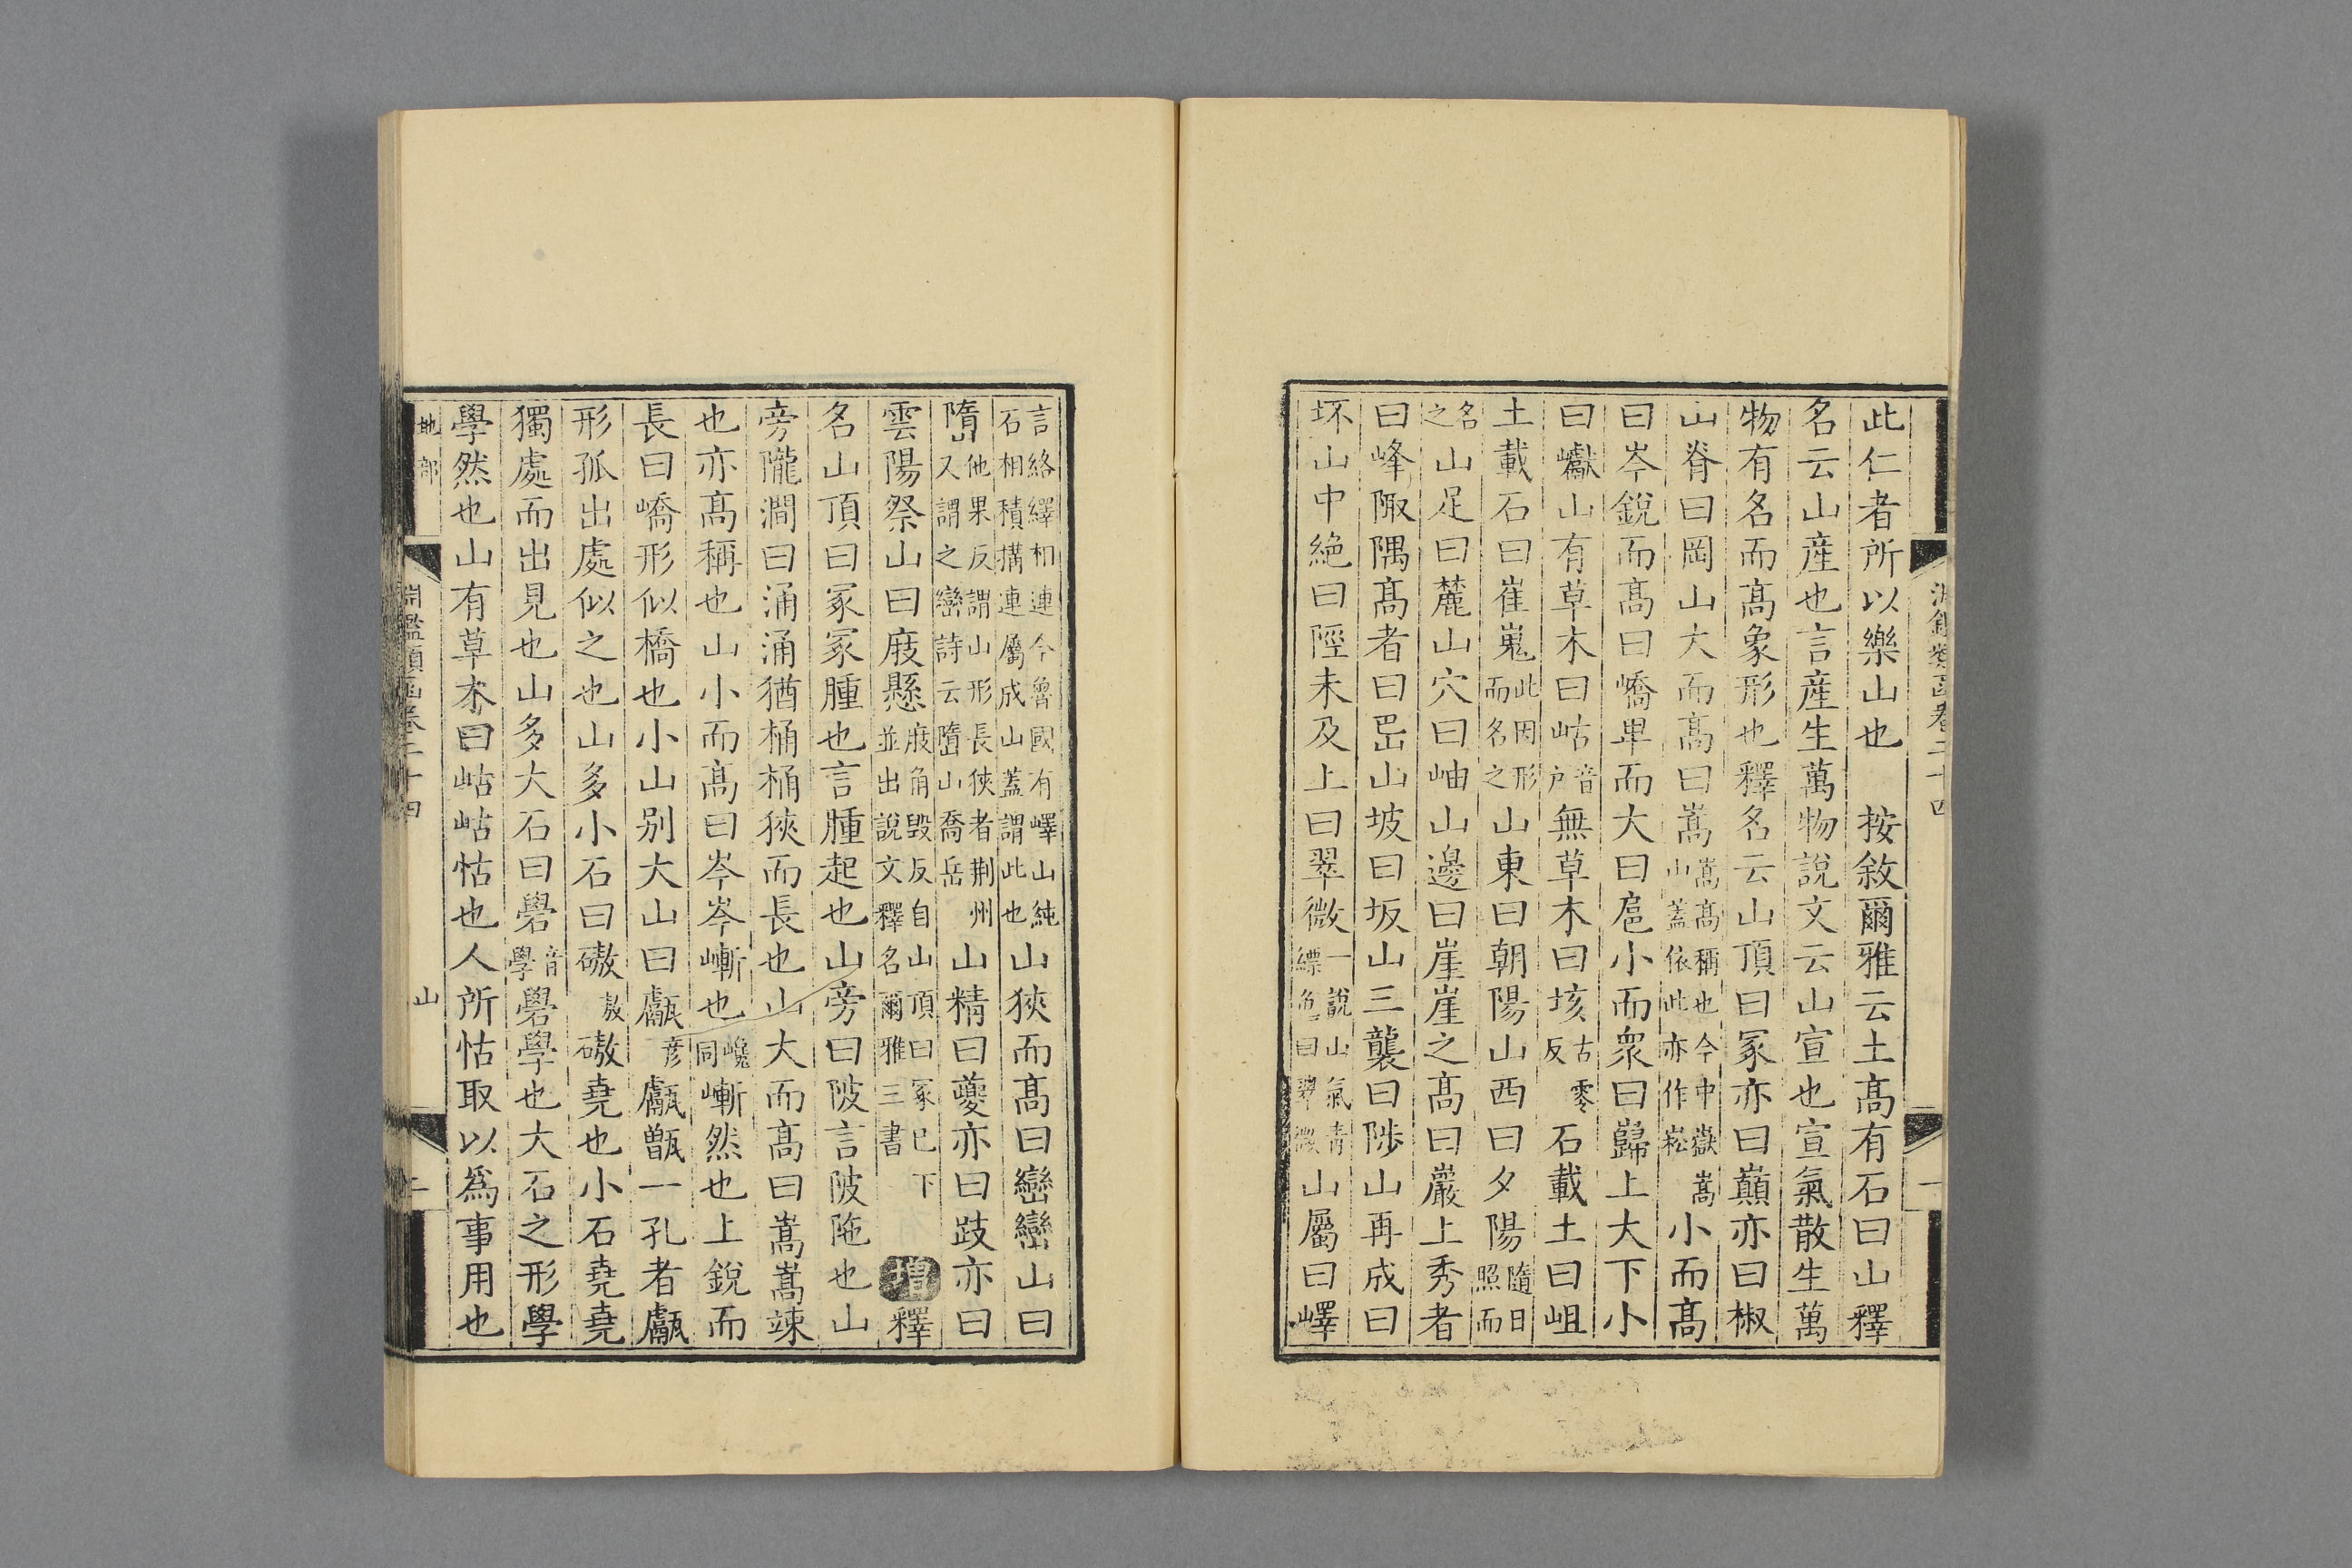 此仁者所以樂山也　按敘爾雅云土髙有石曰山釋
名云山産也言産生萬物說文云山宣也宣氣散生萬
物有名而髙象形也釋名云山頂曰冢亦曰巔亦曰椒
山脊曰岡山大而髙曰嵩嵩髙稱也今中嶽嵩山蓋依此亦作崧小而髙
曰岑銳而髙曰嶠卑而大曰扈小而衆曰巋上大下小
曰巘山有草木曰岵音户無草木曰垓古零反石載土曰岨
土載石曰崔嵬此因形而名之山東曰朝陽山西曰夕陽隨日照而
名之山足曰麓山穴曰岫山邊曰崖崖之髙曰巖上秀者
曰峰陬隅髙者曰岊山坡曰坂山三襲曰陟山再成曰
坏山中絶曰陘未及上曰翠微一說山氣青縹色曰翠微山屬曰嶧
淵鑑類函卷二十四
一
言絡繹相連今魯國有嶧山純石相積搆連屬成山蓋謂此也山狹而髙曰巒巒山曰
隨他果反謂山形長狹者荆州又謂之巒詩云隨山喬岳山精曰夔亦曰跂亦曰
雲陽祭山曰庪懸庪角毁反自山頂曰冢已下並出說文釋名爾雅三書增釋
名山頂曰冢冢腫也言腫起也山旁曰陂言陂陁也山
旁隴澗曰涌涌猶桶桶狹而長也山大而髙曰嵩嵩竦
也亦髙稱也山小而髙曰岑岑嶃也巉同嶃然也上銳而
長曰嶠形似橋也小山别大山曰甗彦甗甑一孔者甗
形孤出處似之也山多小石曰磝敖磝堯也小石堯堯
獨處而出見也山多大石曰礐音學礐學也大石之形學
學然也山有草木曰岵岵怙也人所怙取以爲事用也
地部
淵鑑類函卷二十四
山
二